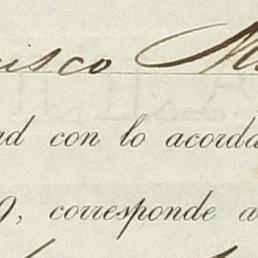 isco M
ad con lo acorda
9, corresponde a